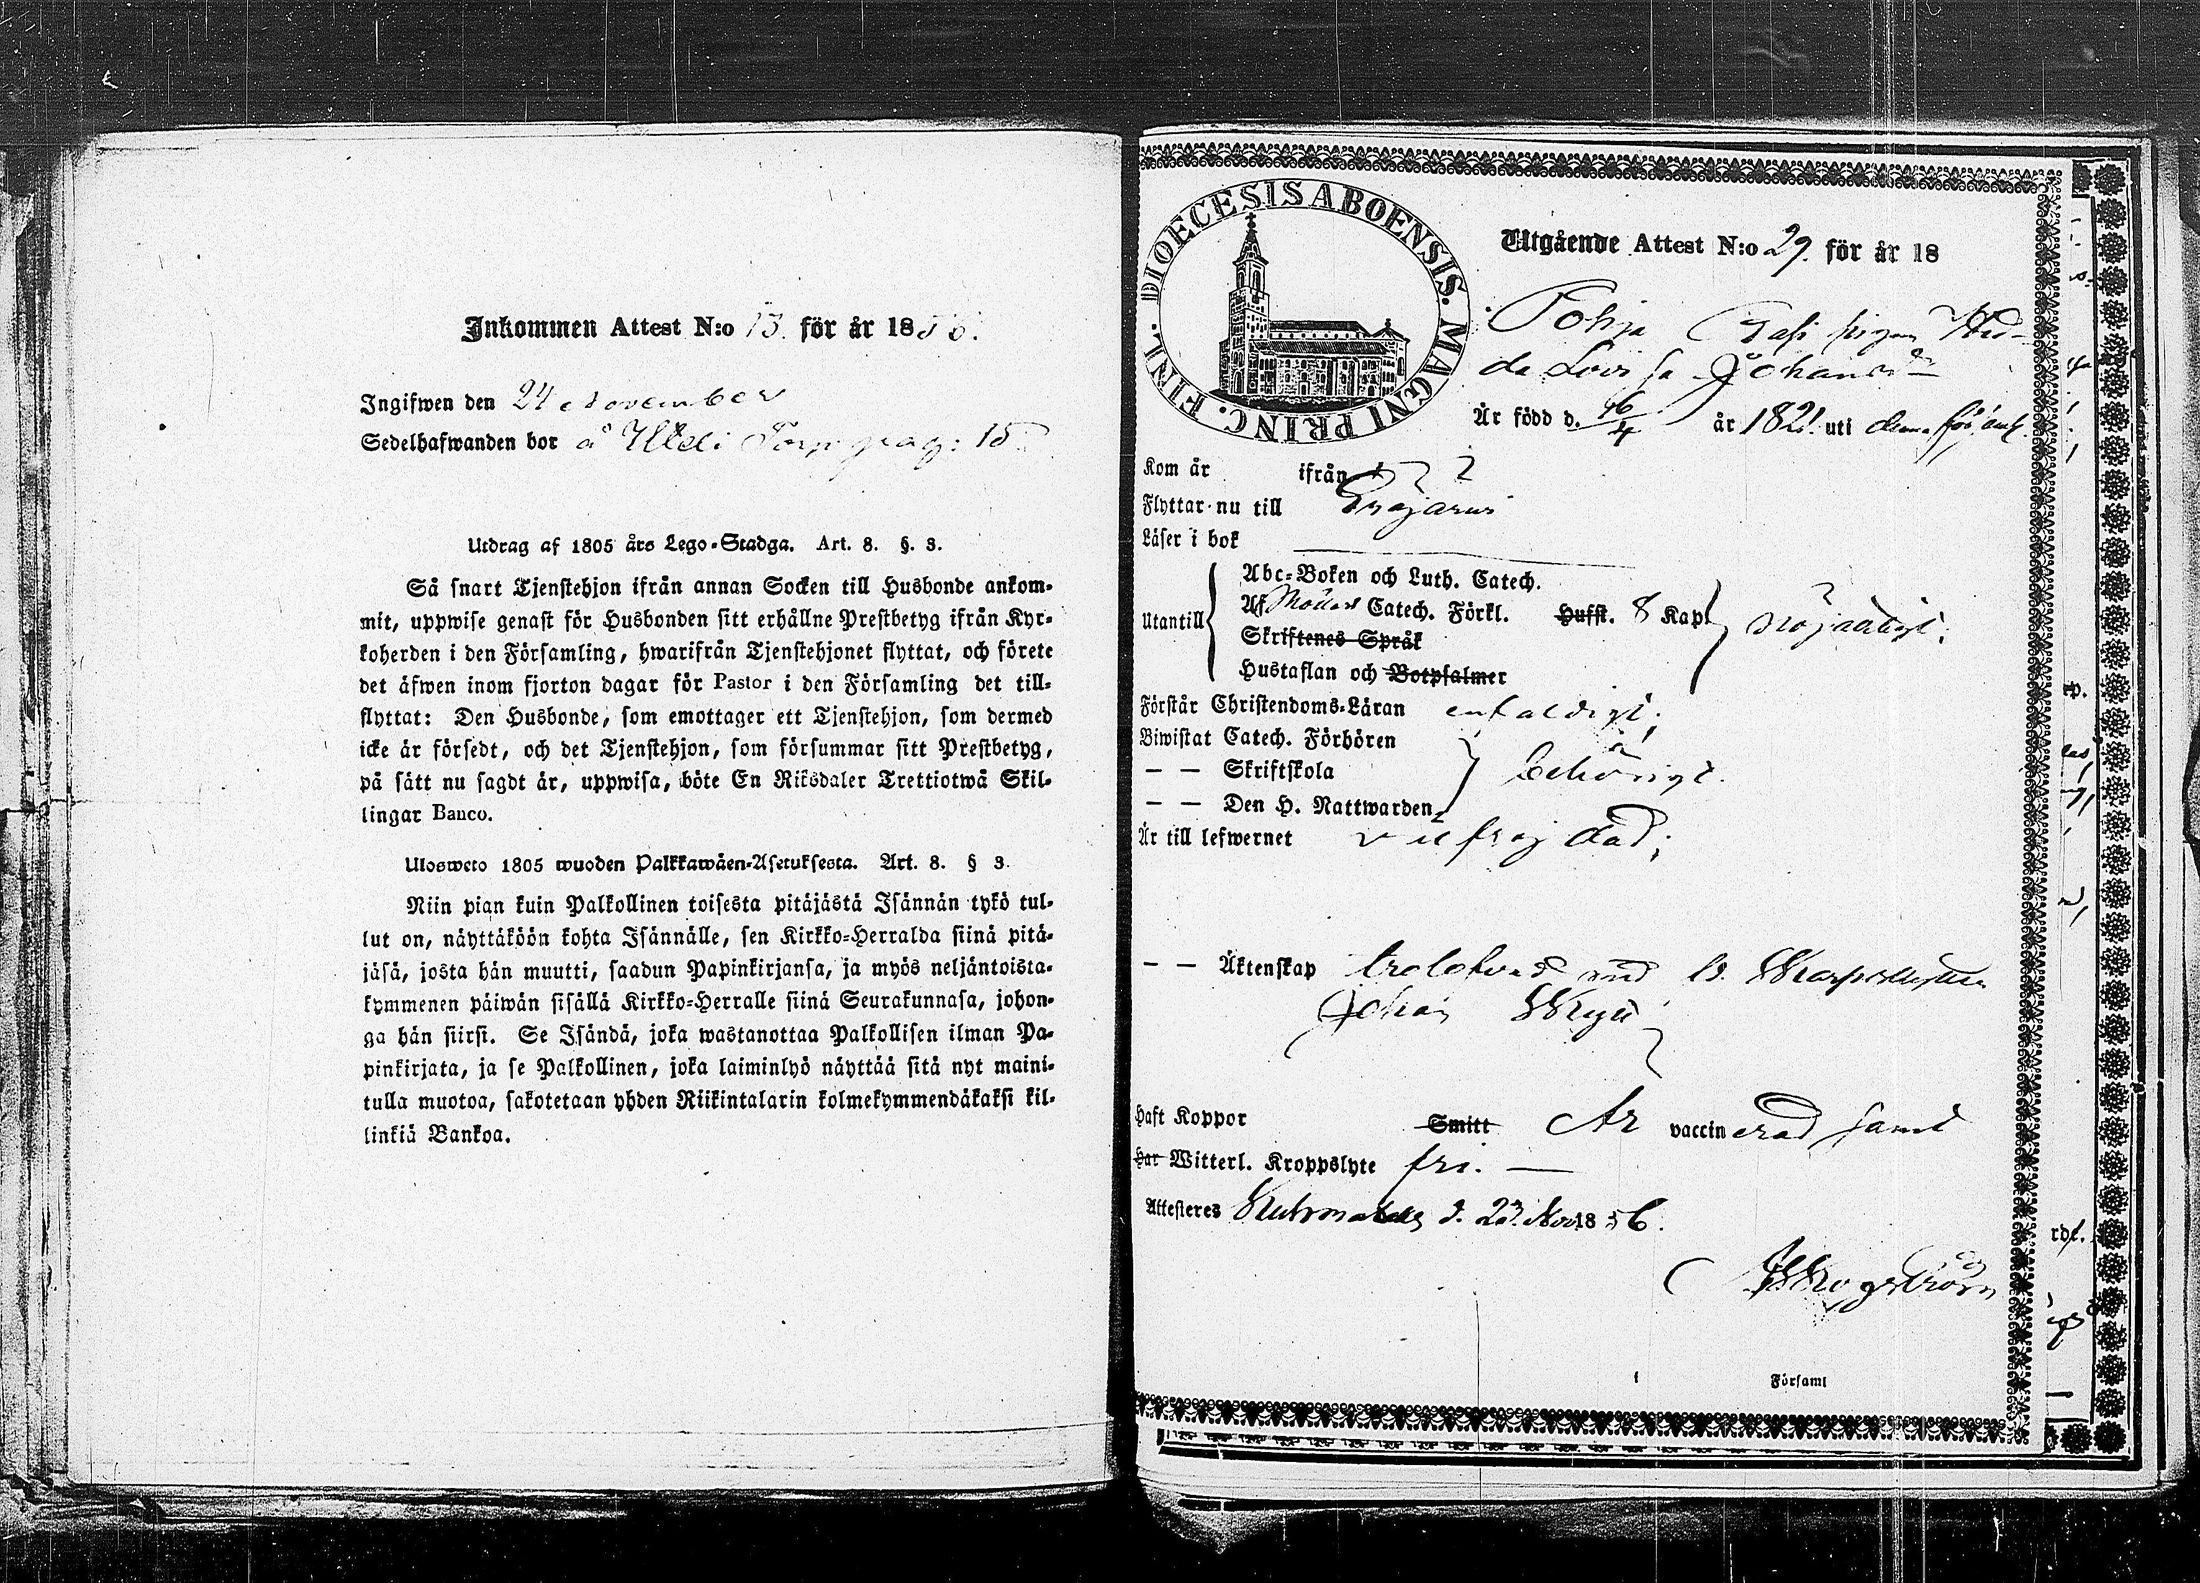 Inkommen Attest N:o 13. för år 1856.
Ingifwen den 24 November
Sedelhafwanden bor å Uldi Torp pag: 15
Utdrag af 1805 års Lego-Stadga. Art. 8. §. 3.
Så snart Tjenstehjon ifrån annan Socken till Husbonde ankom-
mit, uppwise genast för Husbonden sitt erhållne Prestbetyg ifrån Kyr-
koherden i den Församling, hwarifrån Tjenstehjonet flyttat, och förete
det äfwen inom fjorton dagar för Pastor i den Församling det till-
flyttat: Den Husbonde, som emottager ett Tjenstehjon, som dermed
icke är försedt, och det Tjenstehjon, som försummar sitt Prestbetyg,
på sätt nu sagdt är, uppwisa, böte En Riksdaler Trettiotwå Skil-
lingar Banco.
Ulosweto 1805 wuoden Palkkawäen-Asetuksesta. Art. 8. § 3.
Niin pian kuin Palkollinen toisesta pitäjästä Isännän tykö tul-
lut on, näyttäköön kohta Isännälle, sen Kirkko-Herralda siinä pitä-
jäsä, josta hän muutti, saadun Papinkirjansa, ja myös neljäntoista-
kymmenen päiwän sisällä Kirkko-Herralle siinä Seurakunnasa, johon-
ga hän siirsi. Se Isändä, joka wastanottaa Palkollisen ilman Pa-
pinkirjata, ja se Palkollinen, joka laiminlyö näyttää sitä nyt maini-
tulla muotoa, sakotetaan yhden Riikintalarin kolmekymmendäkaksi kil-
linkiä Bankoa.
DIOECESIS ABOENSIS. MAGNI PRINC. FINL.
Utgående Attest N:o 29. för år 18
Pohja pigan Hed-
da Lovisa Johans dr
Är född d. 16/4 år 1821. uti denna förs.
Kom år ifrån
Flyttar nu till
Läser i bok
Utantill
Abc-Boken och Luth. Catech.
Af Möllers Catech. Förkl. Hufst. 8 Kap nöjaktigt.
Skriftenes Språk
Hustaflan och Botpsalmer
Förstår Christendoms-Läran enfaldigt;
Biwistat Catech. Förhören
— — Skriftskola behörigt.
— — Den H. Nattwarden
Är till lefwernet välfrejdad;
— — Äktenskap trolofvad med
Johan
Haft Koppor Smitt Är vaccinerad samt
Har Witterl. Kroppslyte fri. —
Attesteres d. 23. Nov. 1856.
Skogström
Församl